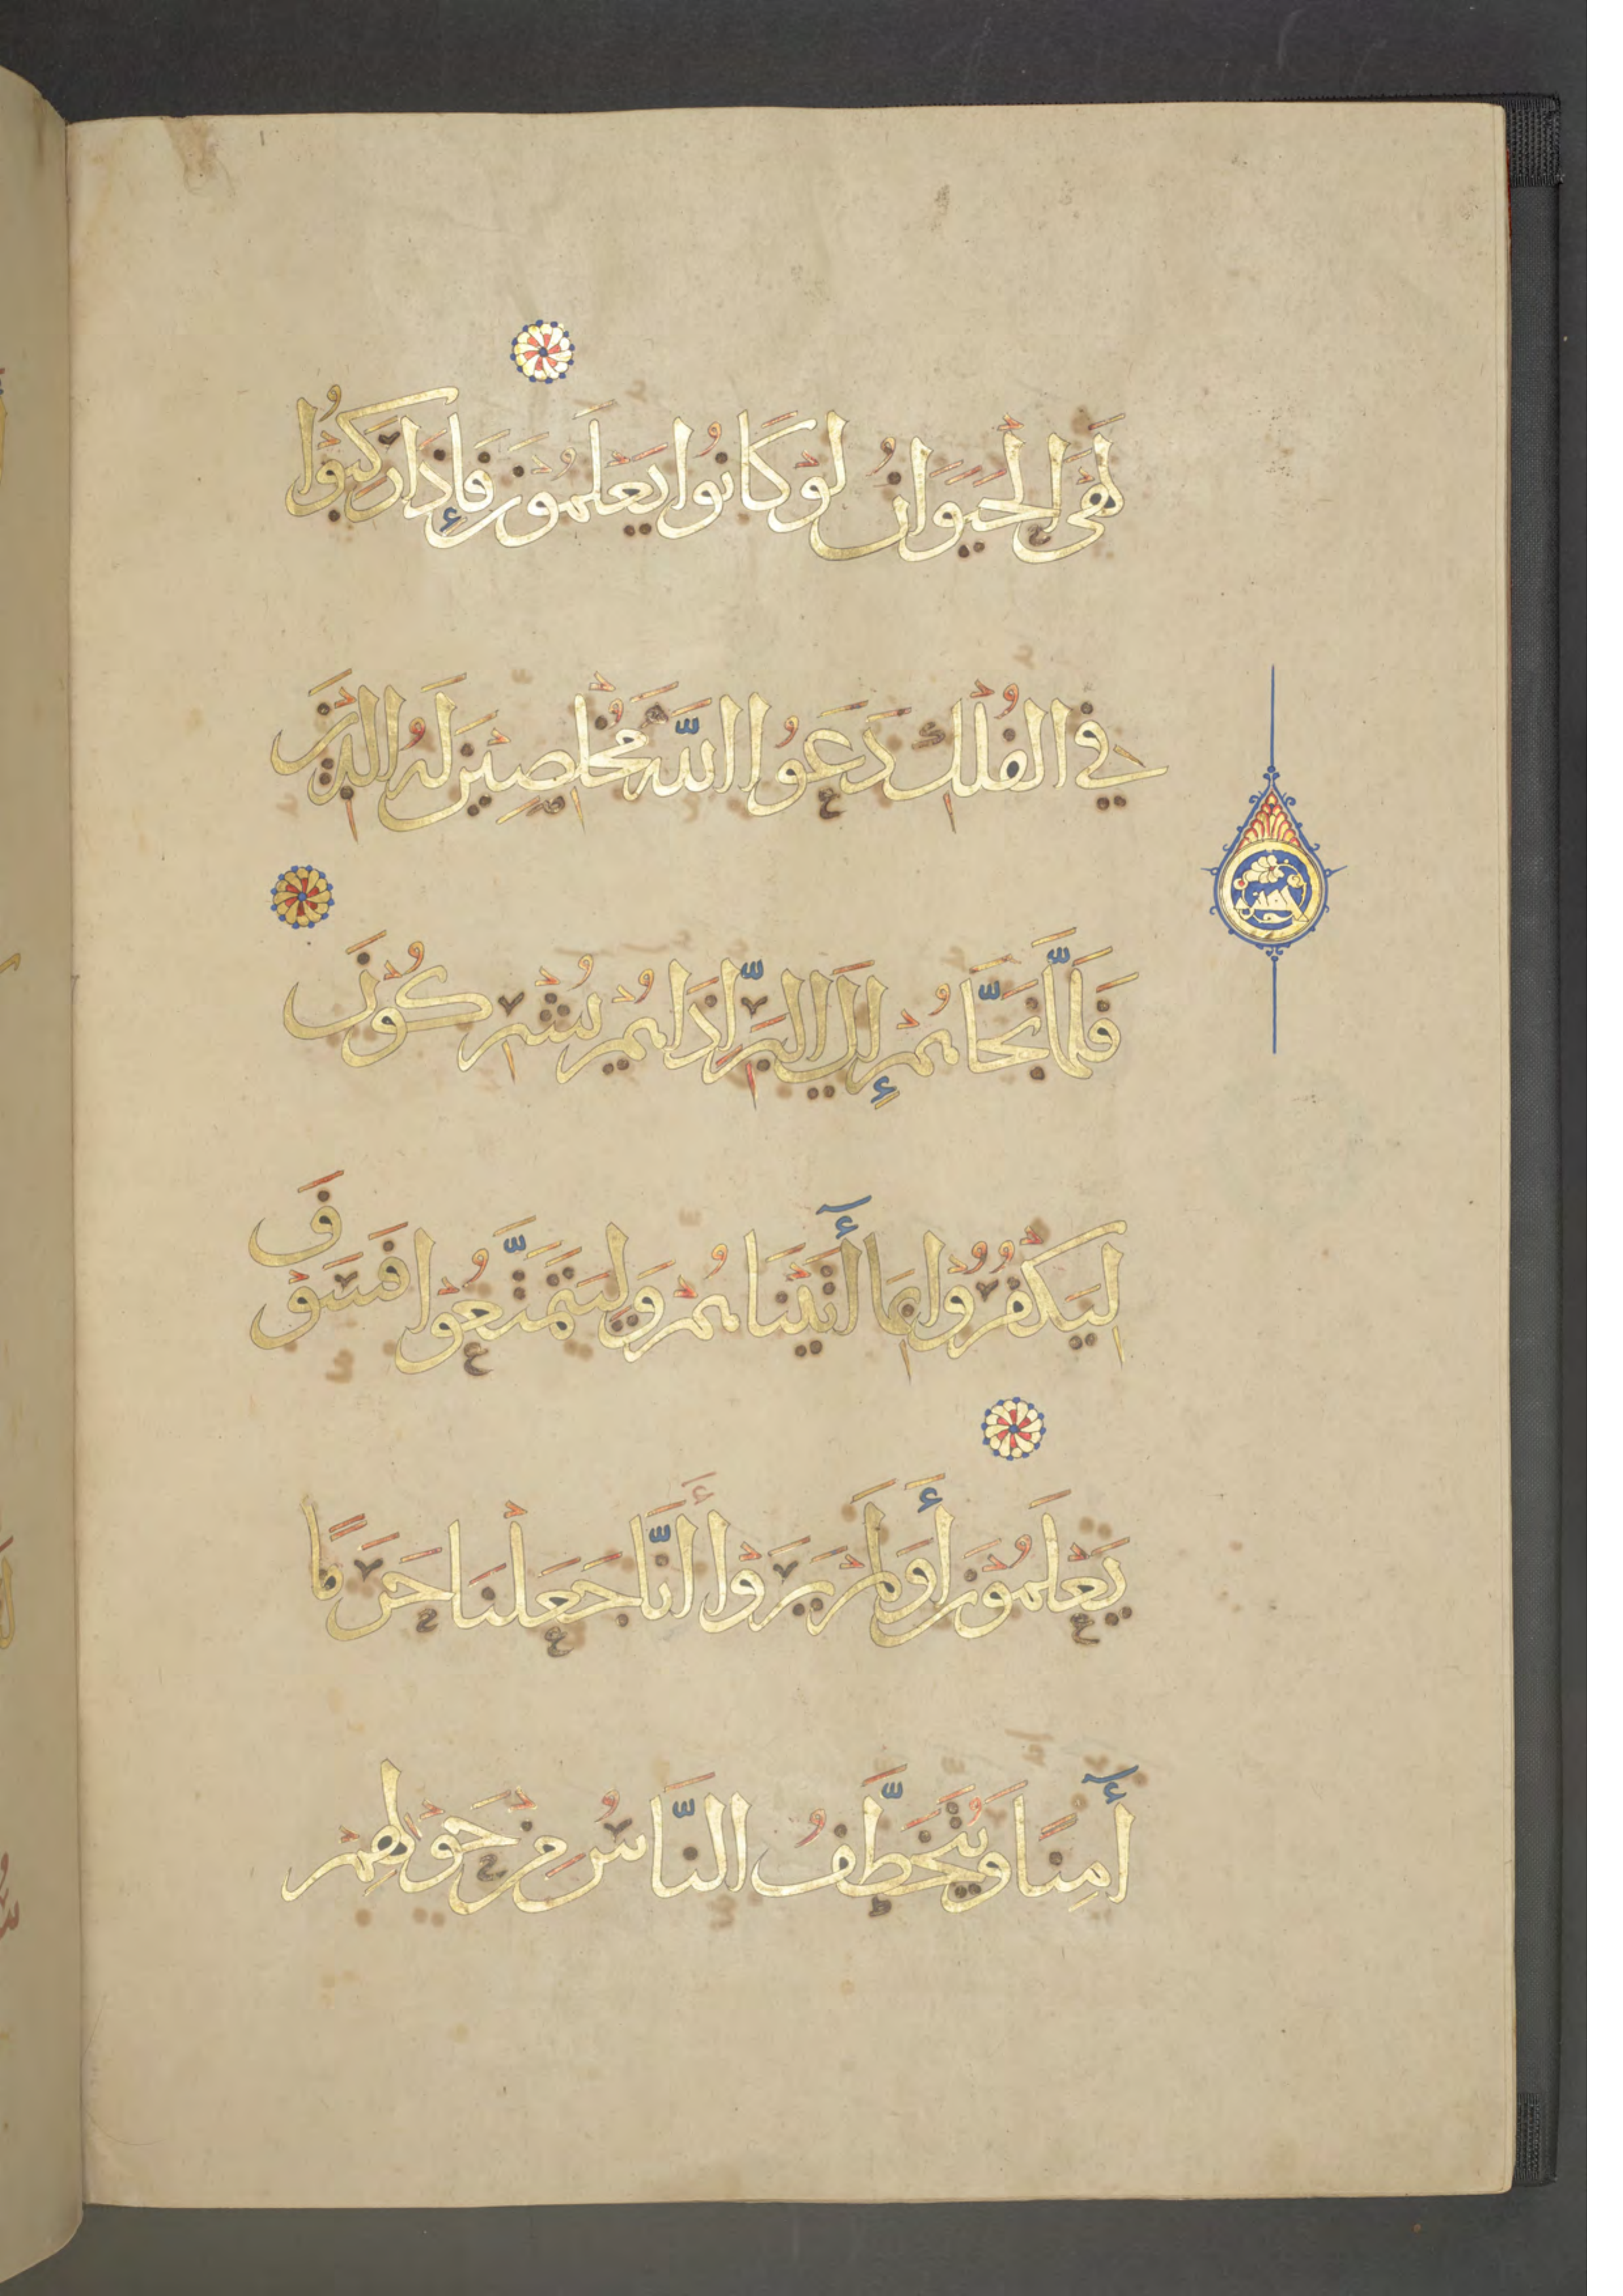 لَهِيَ الْحَيَوَانُ لَوْ كَانُوا يَعْلَمُونَ فَإِذَا رَكِبُوا
فِي الْفُلْكِ دَعَوُا اللَّهَ مُخْلِصِينَ لَهُ الدِّينَ
فَلَمَّا نَجَّاهُمْ إِلَى الْبَرِّ إِذَا هُمْ يُشْرِكُونَ
لِيَكْفُرُوا بِمَا آتَيْنَاهُمْ وَلِيَتَمَتَّعُوا فَسَوْفَ
يَعْلَمُونَ أَوَلَمْ يَرَوْا أَنَّا جَعَلْنَا حَرَمًا
آمِنًا وَيُتَخَطَّفُ النَّاسُ مِنْ حَوْلِهِمْ